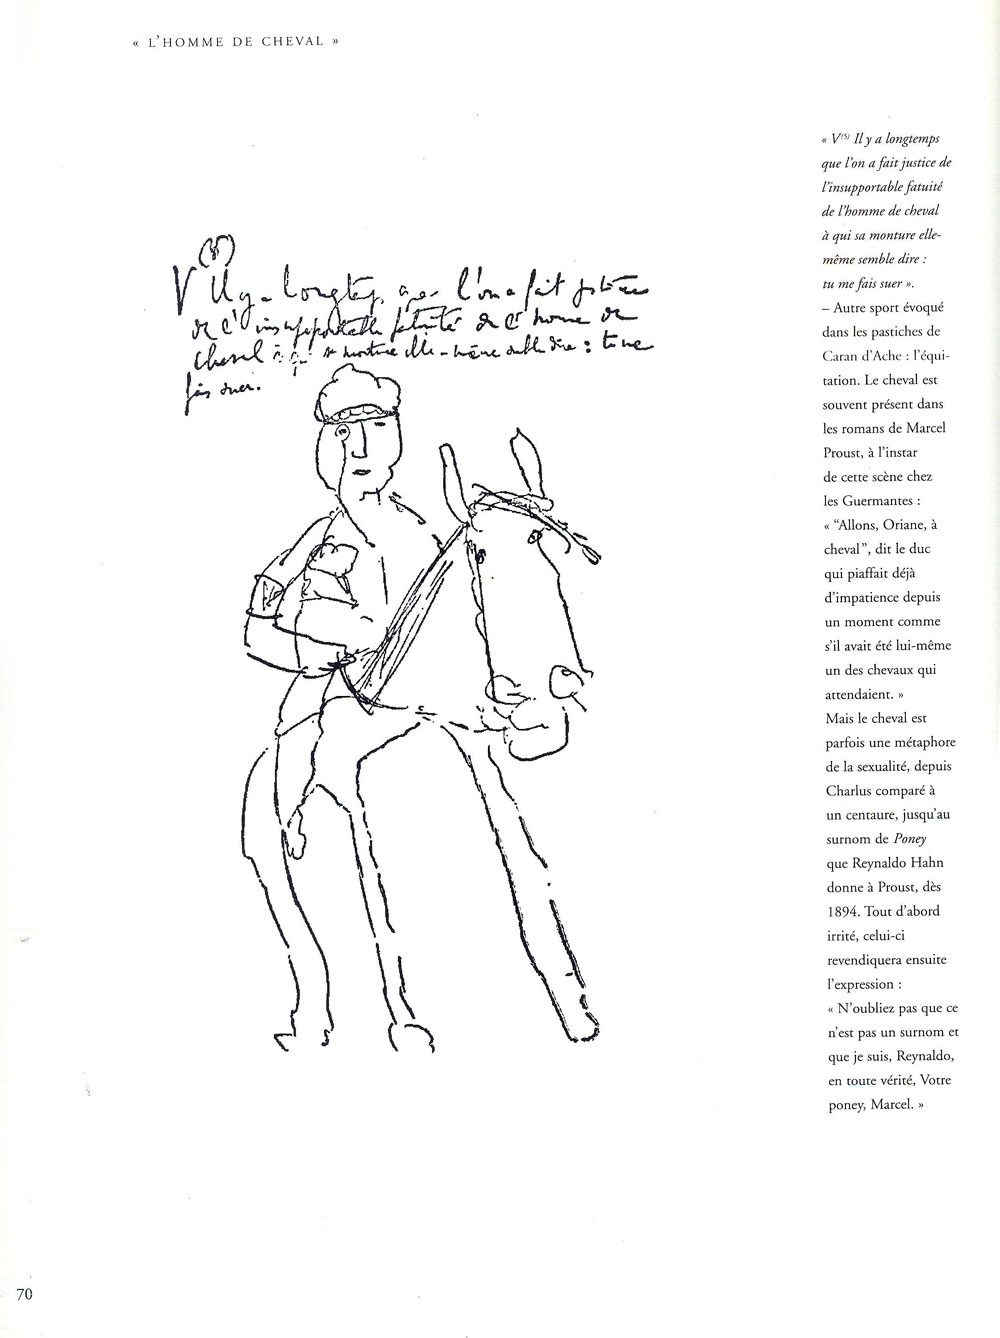 « L'HOMME DE CHEVAL »
(5)
V Il y a longtemps que l'on a fait justice
de l'insupportable fatuité de l'homme de
cheval à qui sa monture elle-même semble dire : tu me
fais suer.
« V(5) Il y a longtemps
que l'on a fait justice de
l'insupportable fatuité
de l'homme de cheval
à qui sa monture elle-
même semble dire :
tu me fais suer ».
– Autre sport évoqué
dans les pastiches de
Caran d'Ache : l'équi-
tation. Le cheval est
souvent présent dans
les romans de Marcel
Proust, à l'instar
de cette scène chez
les Guermantes :
« “Allons, Oriane, à
cheval”, dit le duc
qui piaffait déjà
d'impatience depuis
un moment comme
s'il avait été lui-même
un des chevaux qui
attendaient. »
Mais le cheval est
parfois une métaphore
de la sexualité, depuis
Charlus comparé à
un centaure, jusqu'au
surnom de Poney
que Reynaldo Hahn
donne à Proust, dès
1894. Tout d'abord
irrité, celui-ci
revendiquera ensuite
l'expression :
« N'oubliez pas que ce
n'est pas un surnom et
que je suis, Reynaldo,
en toute vérité, Votre
poney, Marcel. »
70